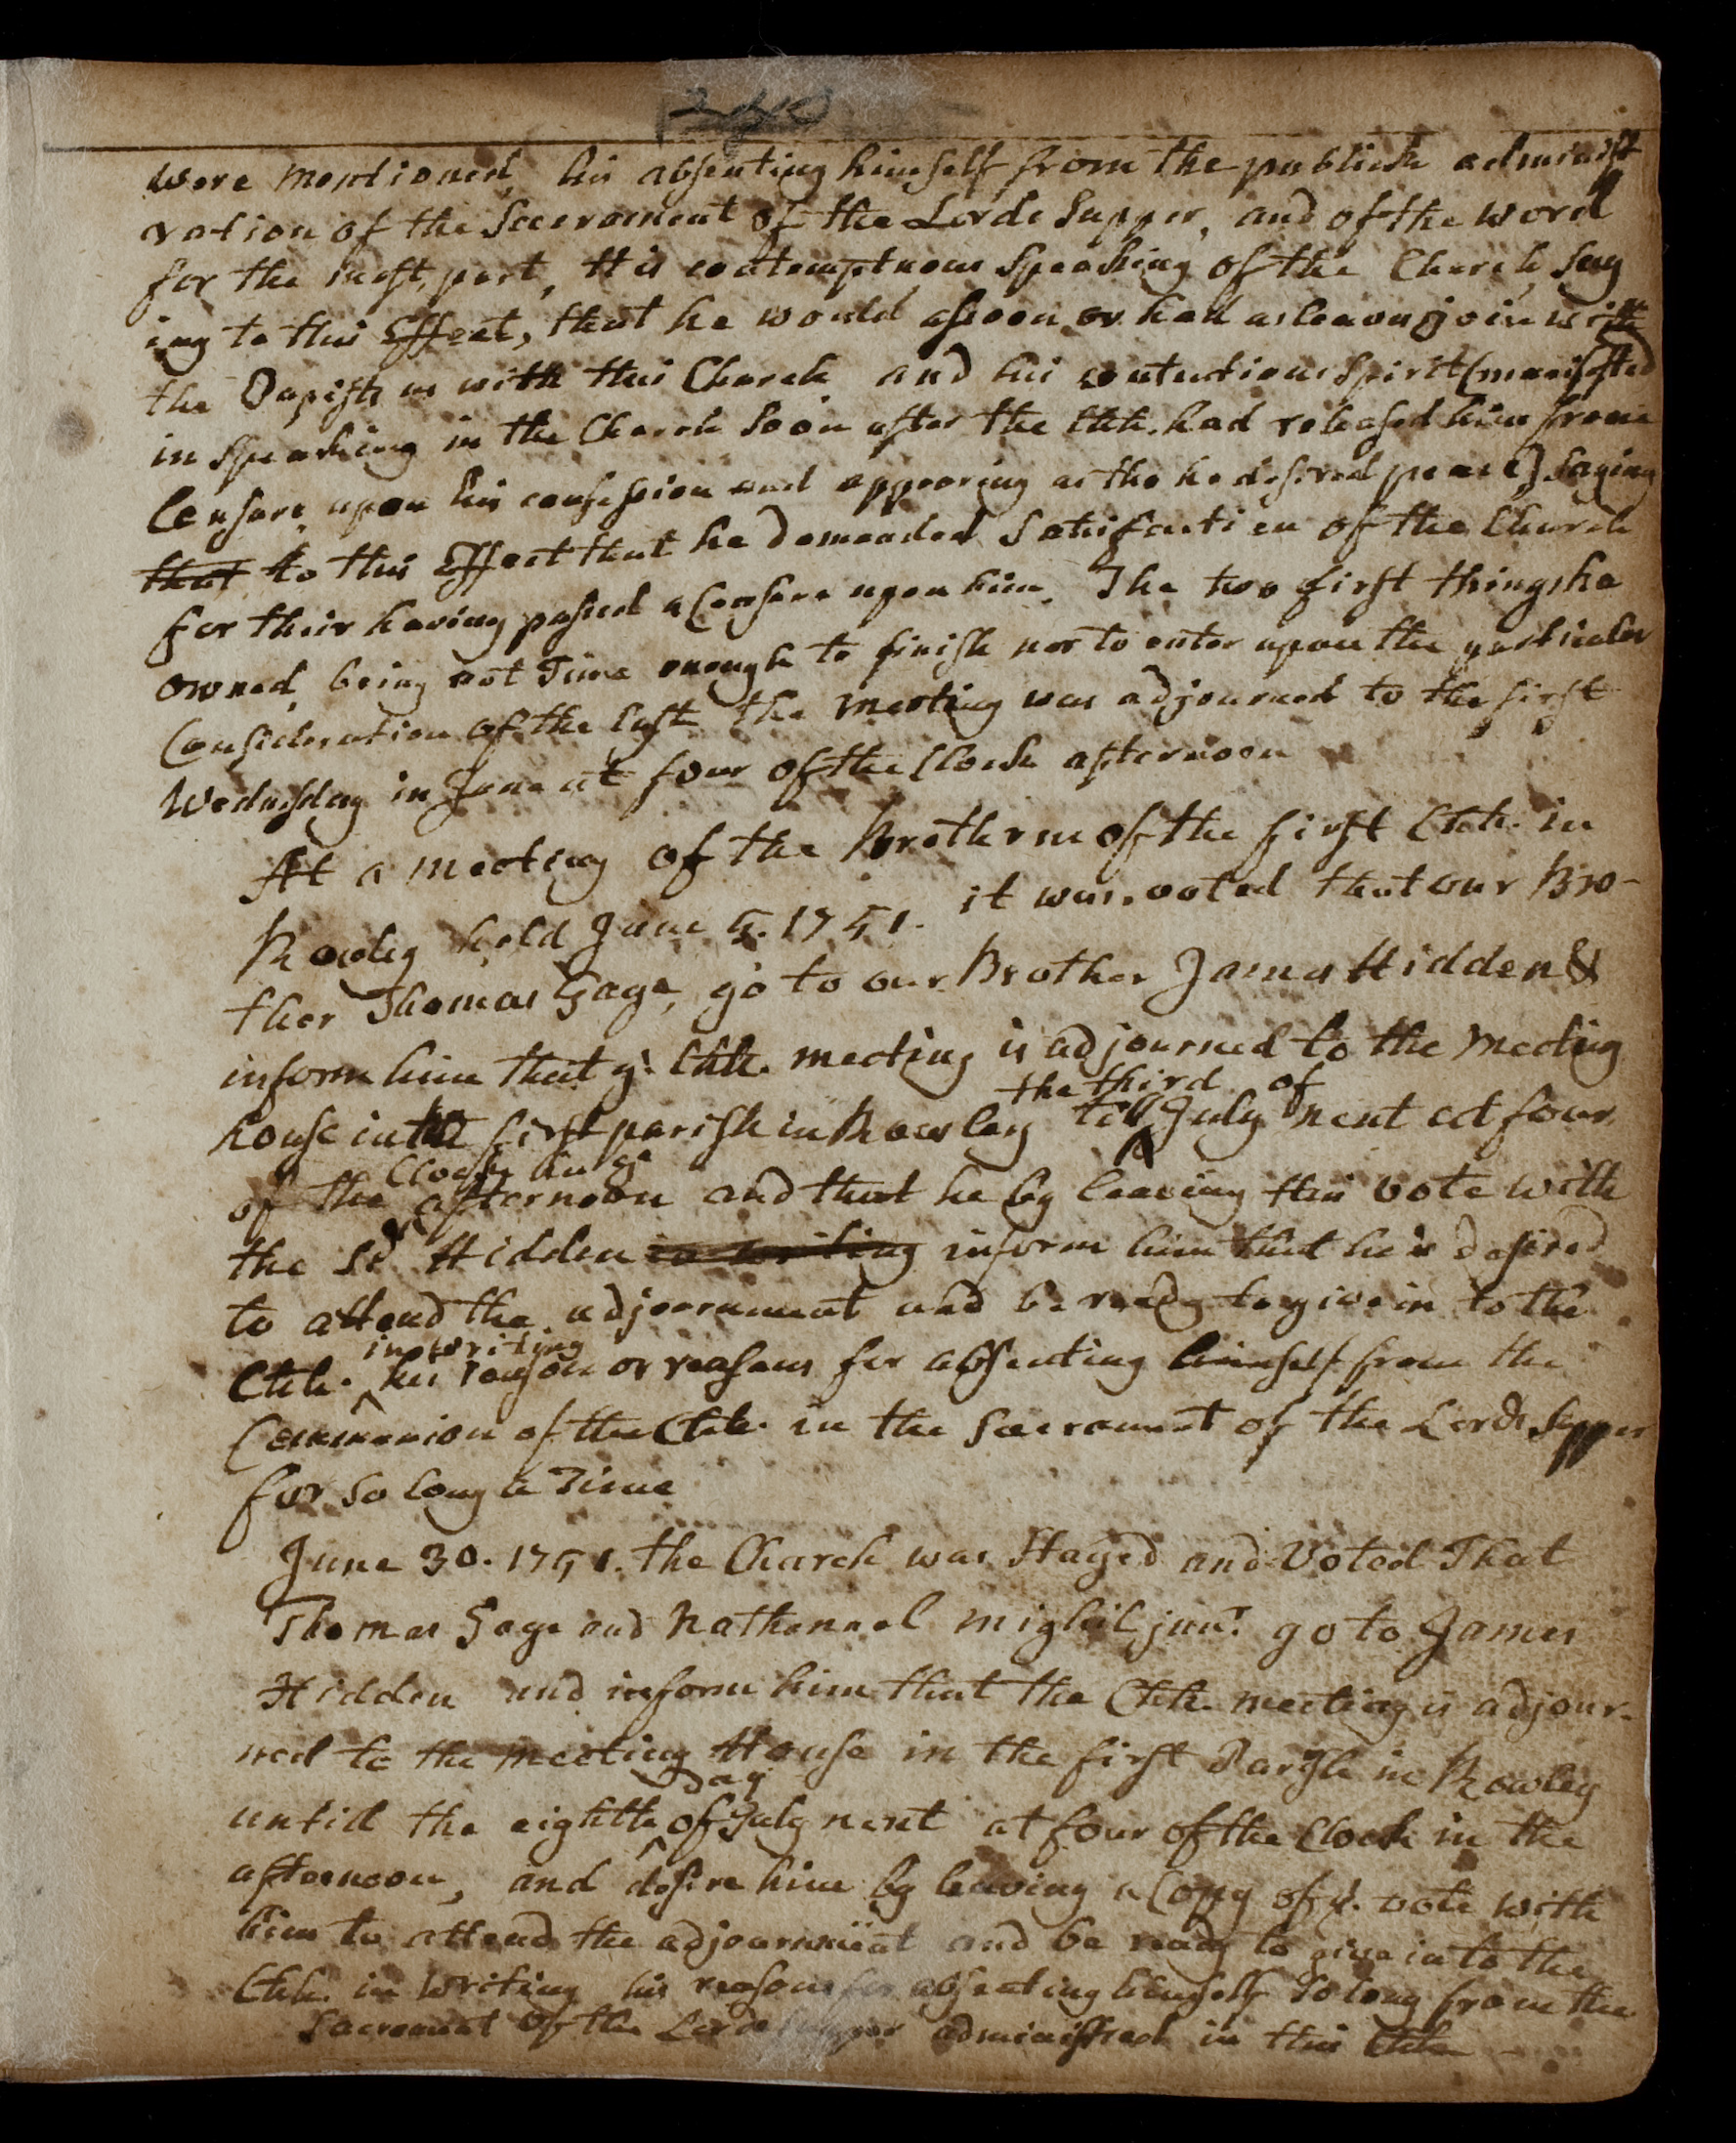 were mentioned, his absenting himself from the publick administ
ration of the Sacrament of the Lords Supper, and of the word
for the most part, His contemptuous speaking of the Church, say
ing to this Effect, that he would assoon or had as leave join with
the Papists as with this Church and his contentious Spirit (manifested
in speaking in the Church soon after the Chh. had released him from
Censure, upon his confession and appearing as tho he desired peace) saying
that to this Effect that he demanded Satisfaction of the Church
for their having passed a Censure upon him. The two first things he
owned, being not Time enough to finish nor to enter upon the particular
Consideration of the last the meeting was adjourned to the first
Wednesday in June at four of the Clock afternoon
At a meeting of the Brethren of the first Chh. in
Rowley held June 5. 1751. it was voted that our Bro-
ther Thomas Gage, go to our Brother James Hidden &
inform him that ye Chh. meeting is adjourned to the Meeting
the third of
house in the first parish in Rowley till July next at four
Clock in ye
of the afternoon and that he by leaving this vote with
the sd Hidden in writing inform him that he is desired
to attend the adjournment and be ready to give in to the
in writing
Chh. his reason or reasons for absenting himself from the
Communion of the Chh. in the Sacrament of the Lords Supper
for so long a Time
June 30. 1751. the Church was Stayed and Voted That
Thomas Gage and Nathanael Mighil junr. go to James
Hidden and inform him that the Chh. meeting is adjour-
ned to the meeting House in the first Parish in Rowley
Day
until the eighth of July next at four of the Clock in the
afternoon, and desire him by leaving a Copy of ye. vote with
him to attend the adjournment and be ready to give in to the
Chh. in writing his reasons for absenting himself so long from the
Sacrament of the Lords Supper administred in this Chh